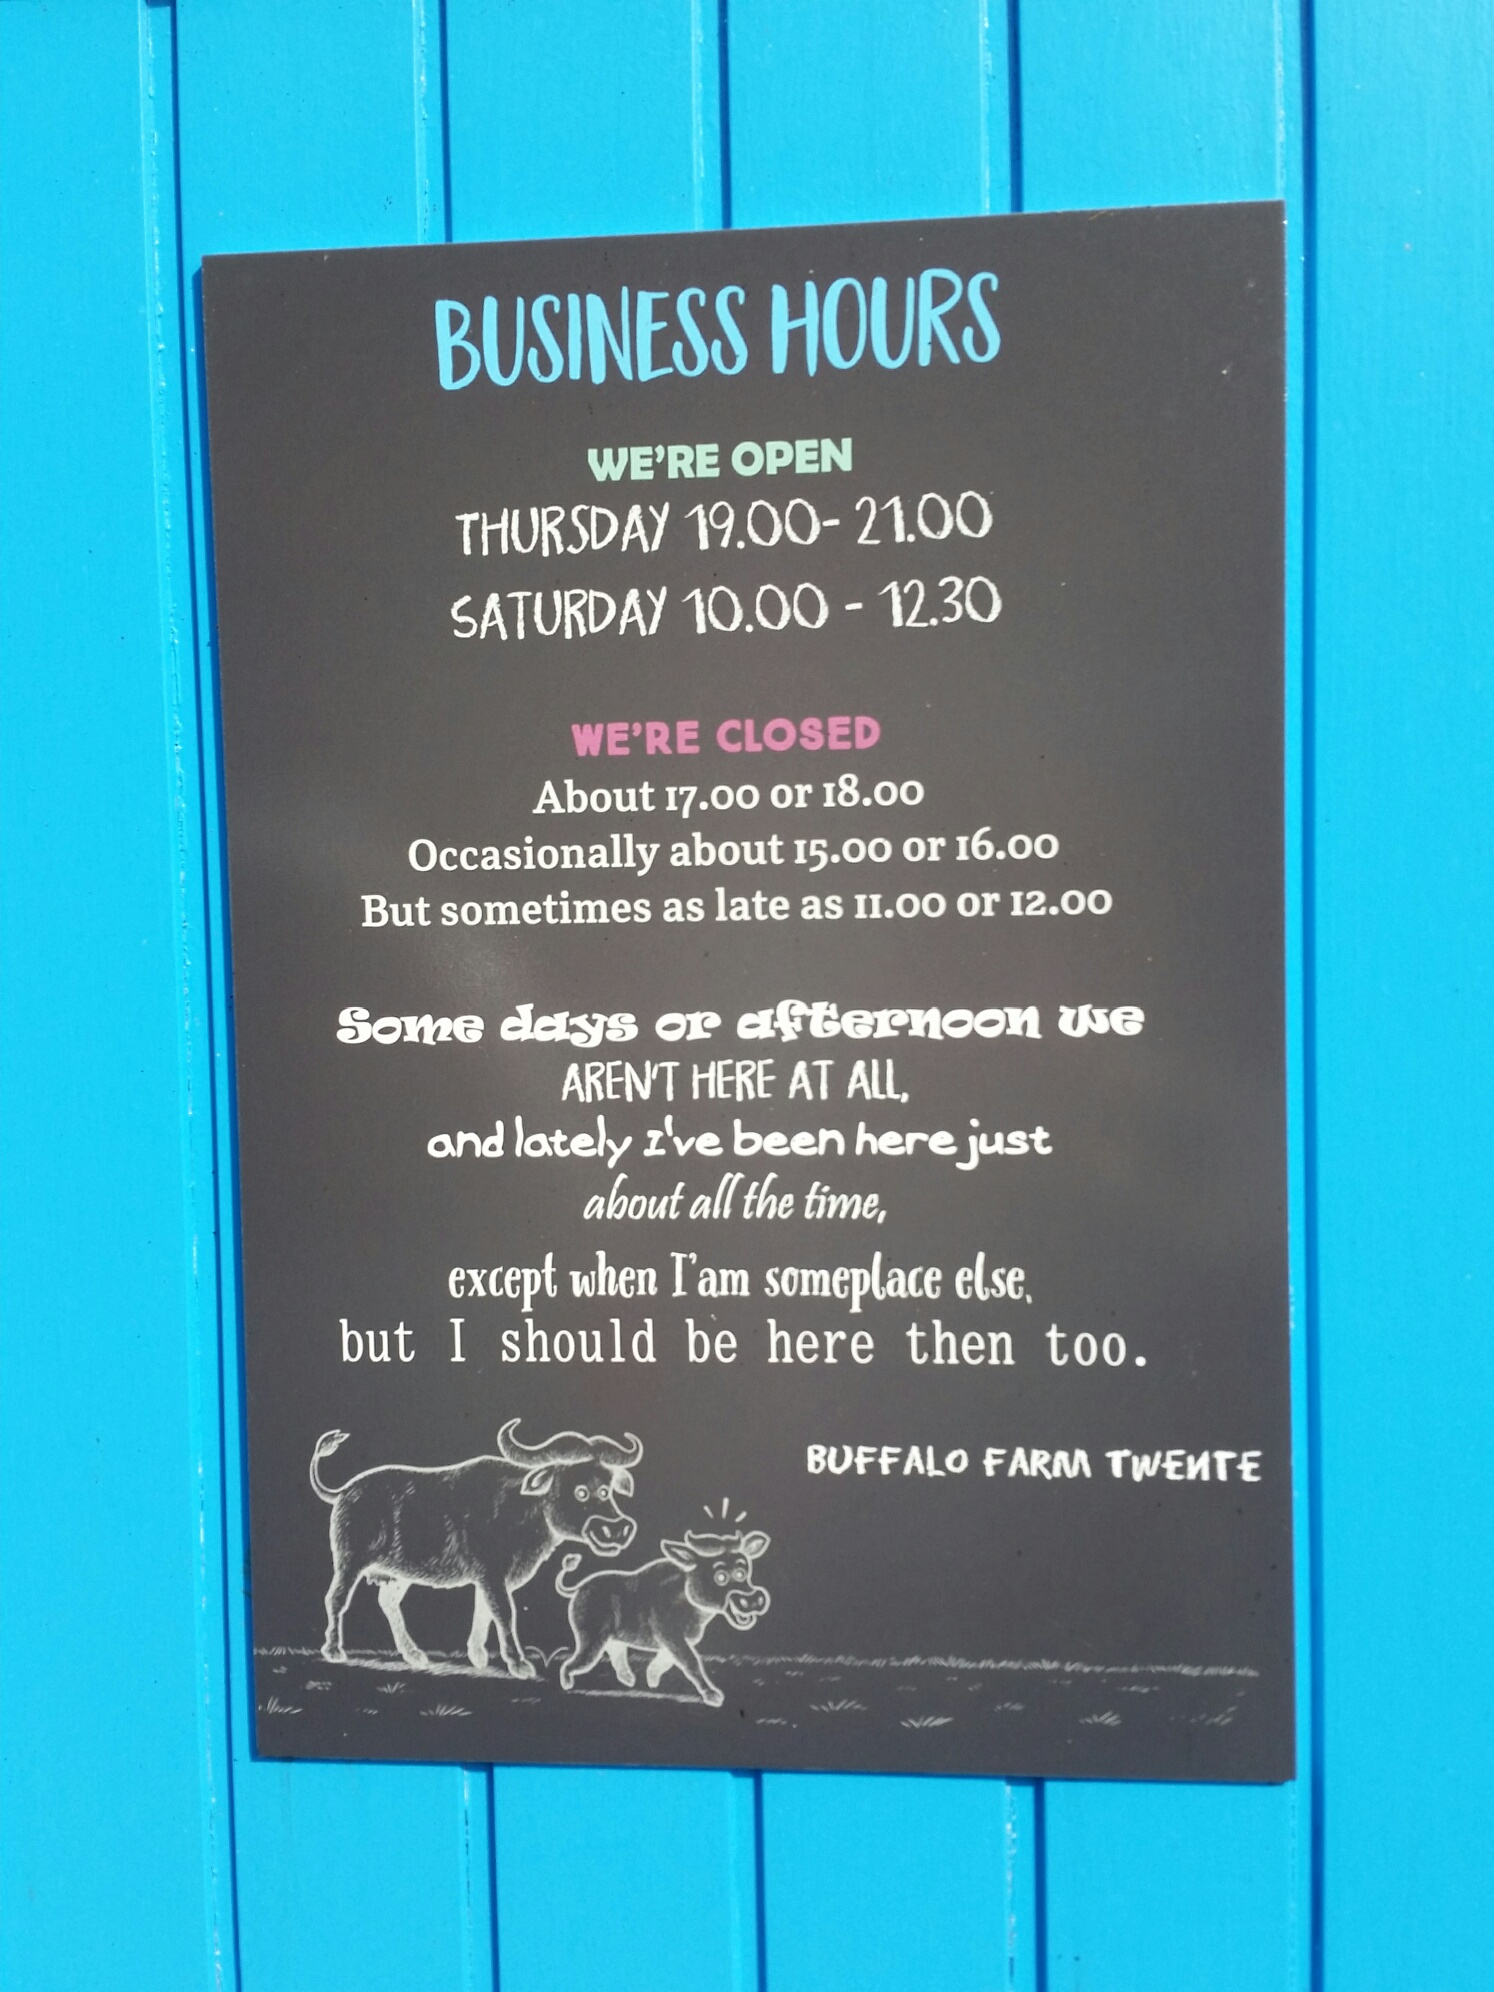 BUSINESS HOURS
WE'RE OPEN
THURSDAY 19.00- 21.00
SATURDAY 10.00 - 12.30
WE'RE CLOSED
About 17.00 or 18.00
Occasionally about 15.00 or 16.00
But sometimes as late as 11.00 or 12.00
Some days or afternoon we
AREN'T HERE AT ALL,
and lately I've been here just
about all the time,
except when I'am someplace else,
but I should be here then too.
BUFFALO FARM TWENTE